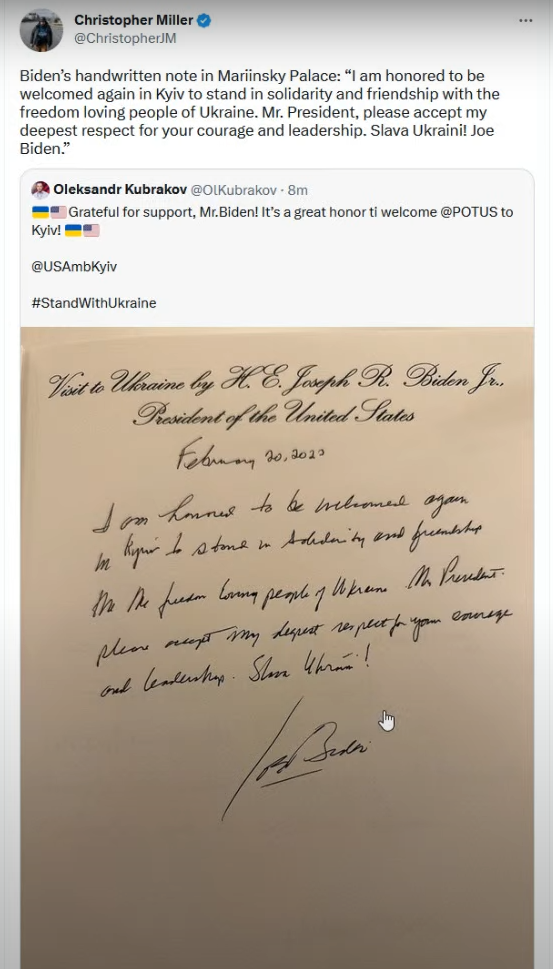 Christopher Miller
@ChristopherJM
Biden’s handwritten note in Mariinsky Palace: “I am honored to be
welcomed again in Kyiv to stand in solidarity and friendship with the
freedom loving people of Ukraine. Mr. President, please accept my
deepest respect for your courage and leadership. Slava Ukraini! Joe
Biden.”
Oleksandr Kubrakov @OlKubrakov · 8m
🇺🇦🇺🇸Grateful for support, Mr.Biden! It’s a great honor ti welcome @POTUS to
Kyiv! 🇺🇦🇺🇸
@USAmbKyiv
#StandWithUkraine
Visit to Ukraine by H. E. Joseph R. Biden Jr.,
President of the United States
February 20, 2023
I am honored to be welcomed again
in Kyiv to stand in solidarity and friendship
the freedom loving people of Ukraine Mr President.
please accept my deepest respect for your courage
and leadership. Slava Ukraini!
Joe Biden